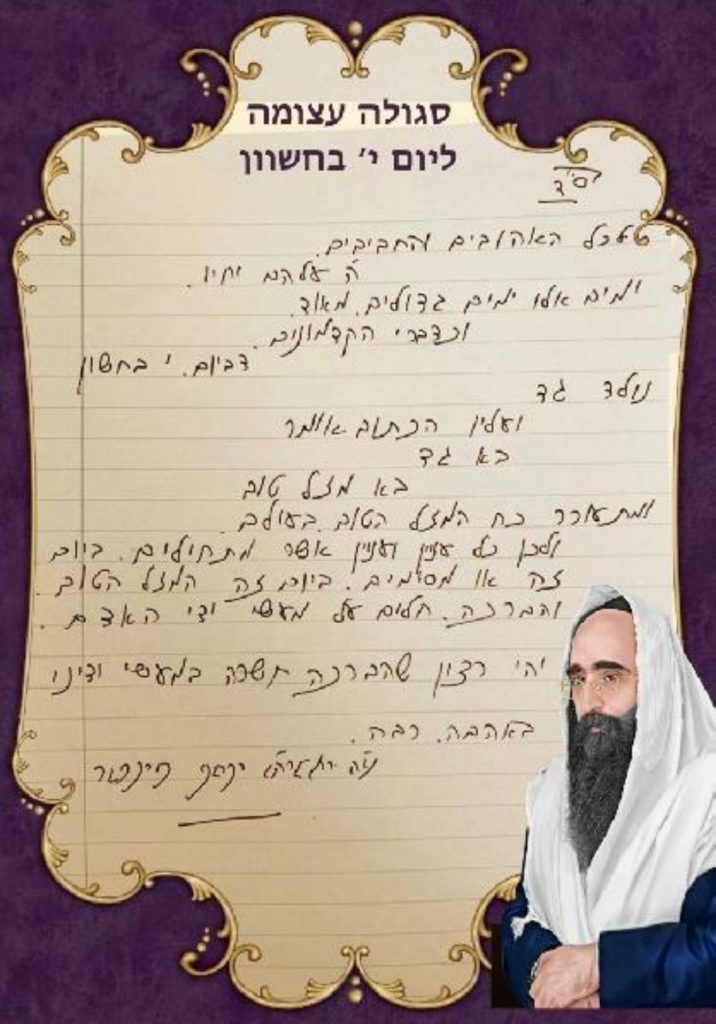 סגולה עצומה
ליום י' בחשוון
בס"ד
לכל האהובים והחביבים.
ה' עליהם יחיו.
ימים אלו ימים גדולים מאוד.
וכדברי הקדמונים.
דביום. י בחשון
נולד גד
ועליו הכתוב אומר
בא גד
בא מזל טוב
ומתעורר כח המזל הטוב בעולם.
ולכן כל ענין וענין אשר מתחילים. ביום
זה או מסיימים. ביום זה המזל הטוב
והברכה. חלים על מעשי ידי האדם.
יהי רצון שהברכה תשרה במעשי ידינו
באהבה. רבה.